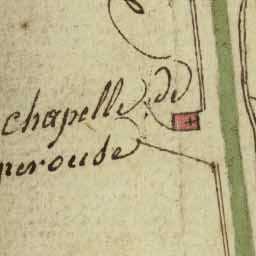 chapelle de
neroude